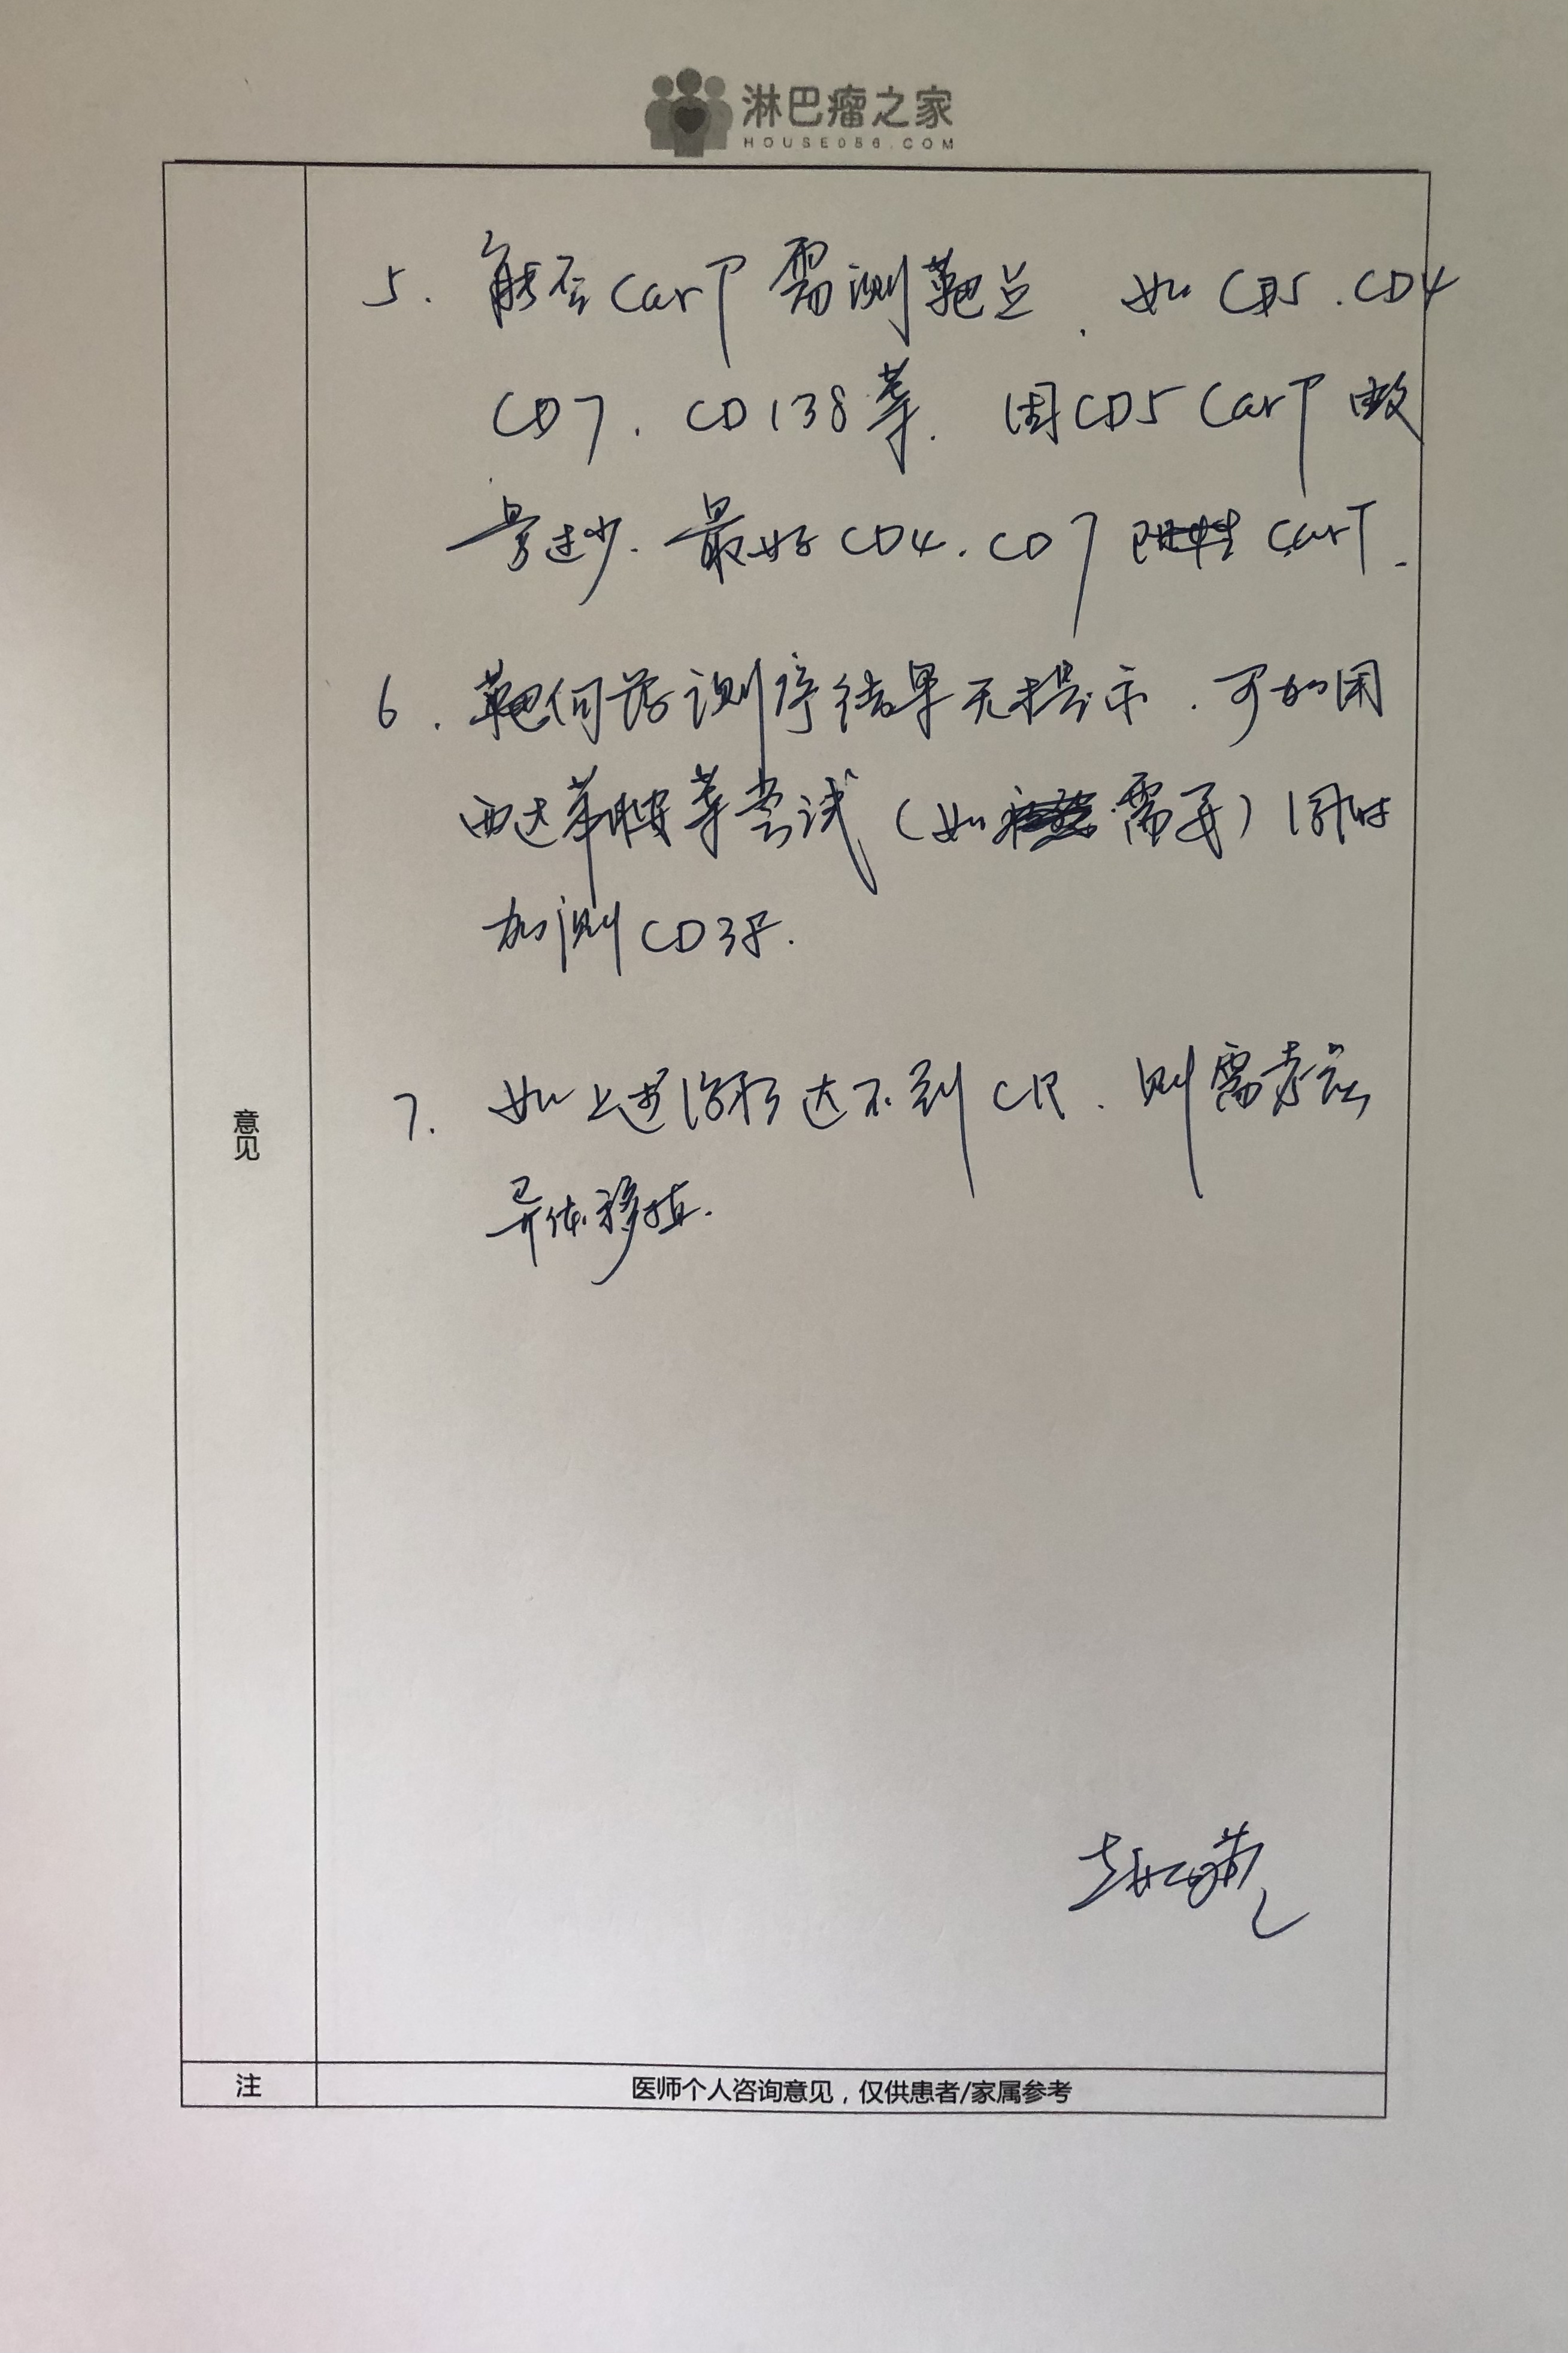 淋巴瘤之家
HOUSE086.COM
5. 能否CarT需测靶点、如CD5.CD4
CD7. CD138等. 因CD5 CarT做
量过少. 最好CD4.CD7阳性CarT.
6. 靶向药测序结果无提示.可加用
西达苯胺等尝试(如需要)同时
加测CD38.
7. 如上述治疗达不到CR.则需考虑
异体移植.
意见
注
医师个人咨询意见,仅供患者/家属参考